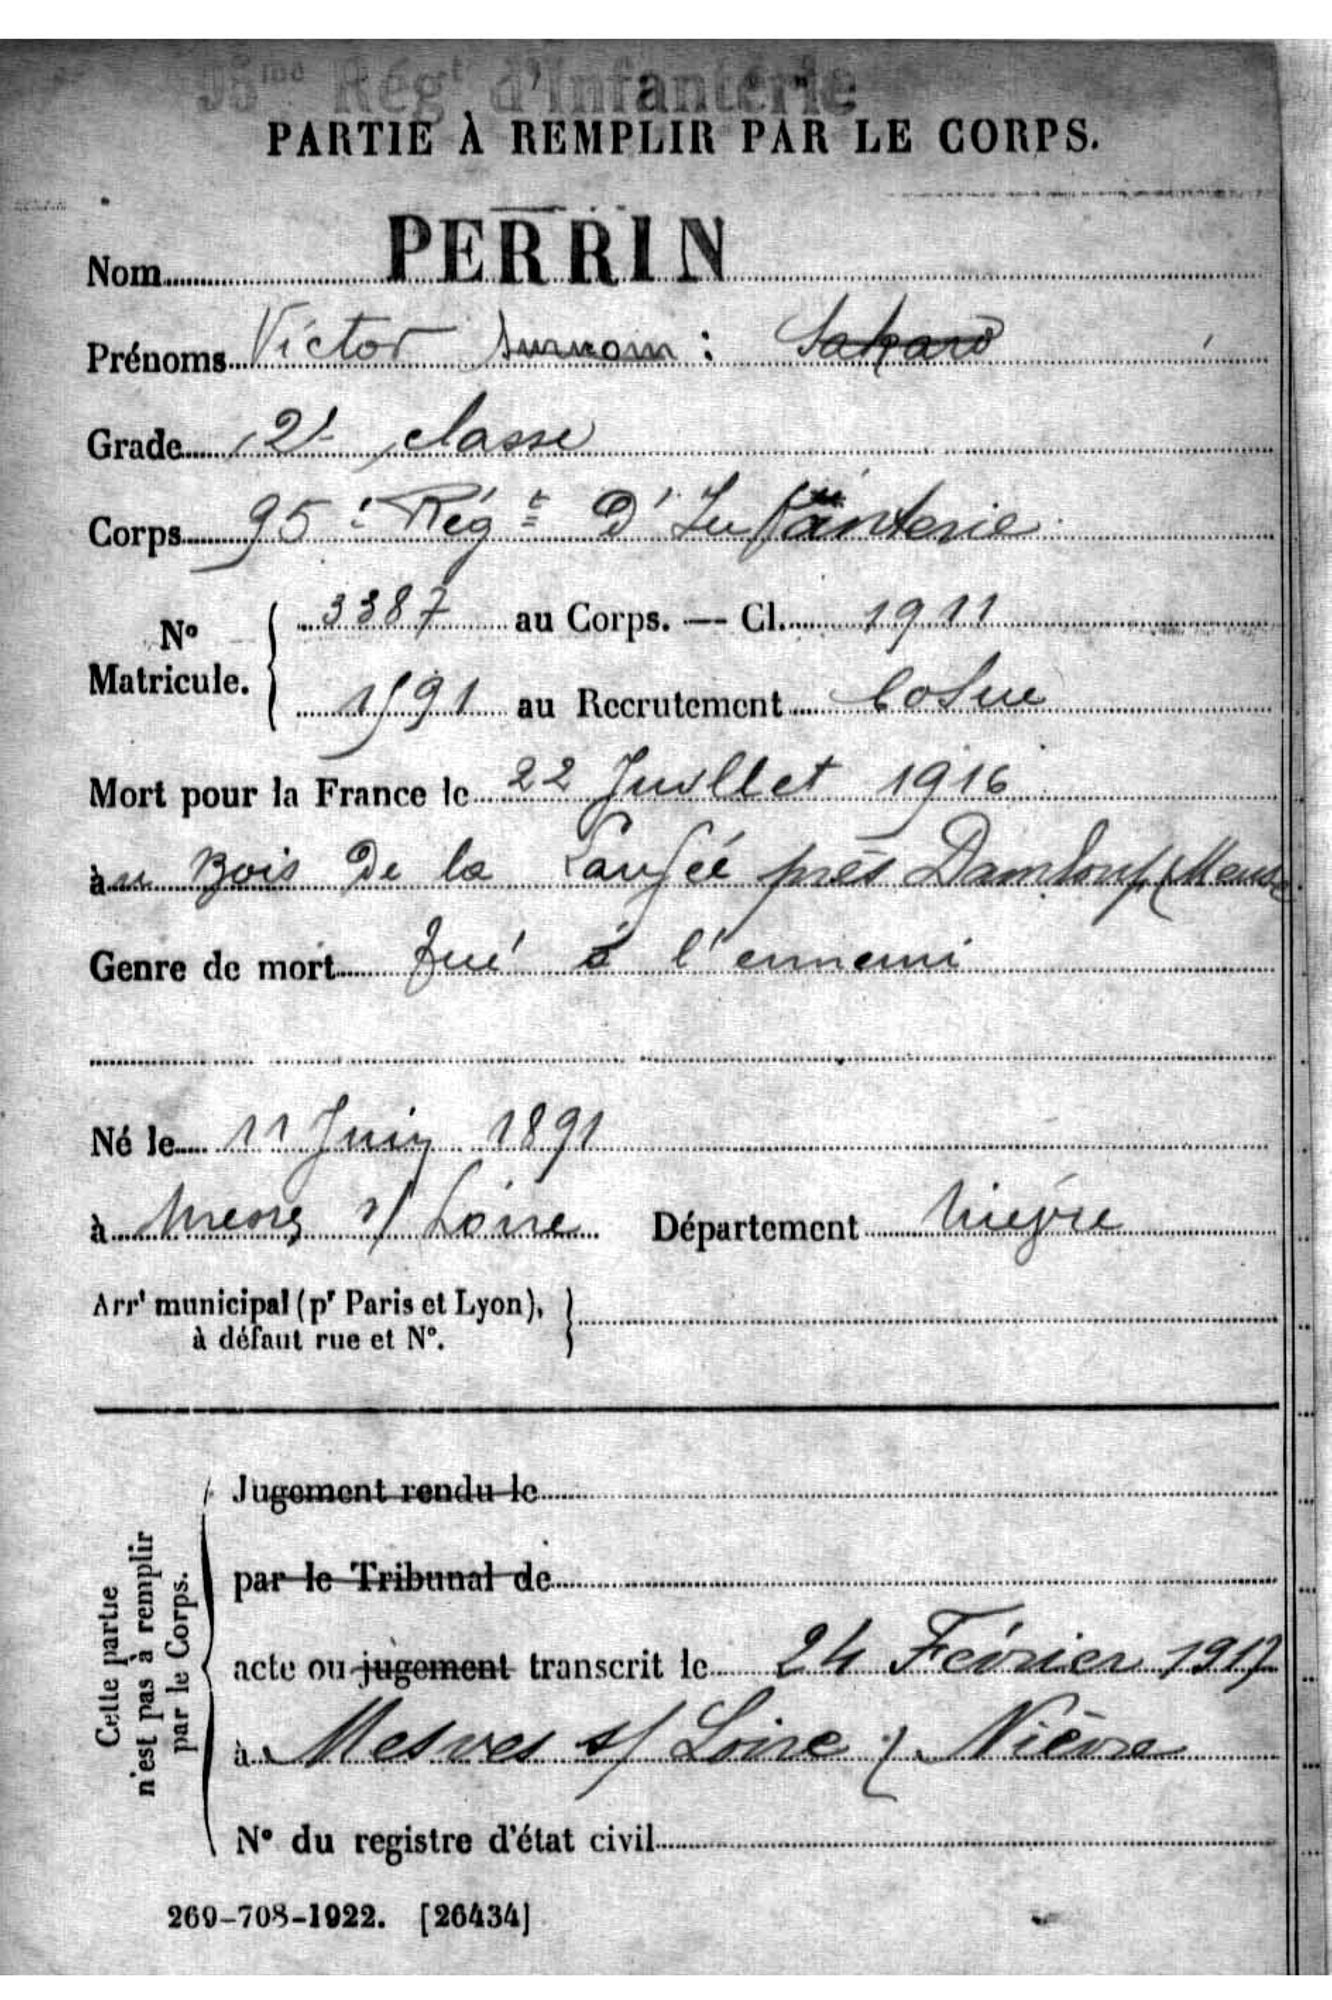 95me Régt d'Infanterie
PARTIE À REMPLIR PAR LE CORPS.
Nom PERRIN
Prénoms Victor Surnom :
Grade 2e classe
Corps 95e Régt D'Infanterie
No Matricule. { 3387 au Corps. — Cl. 1911
1591 au Recrutement Cosne
Mort pour la France le 22 Juillet 1916
au Bois De la Laufée près Damloup (Meuse
Genre de mort Tué à l'ennemi
Né le 11 Juin 1891
à s/ Loire Département Nièvre
Arrt municipal (pr Paris et Lyon), }
à défaut rue et No.
Cette partie
n'est pas à remplir
par le Corps.
Jugement rendu le
par le Tribunal de
acte ou jugement transcrit le 24 Février 1917
à Mesves s/ Loire / Nièvre
No du registre d'état civil
269-708-1922. [26434]